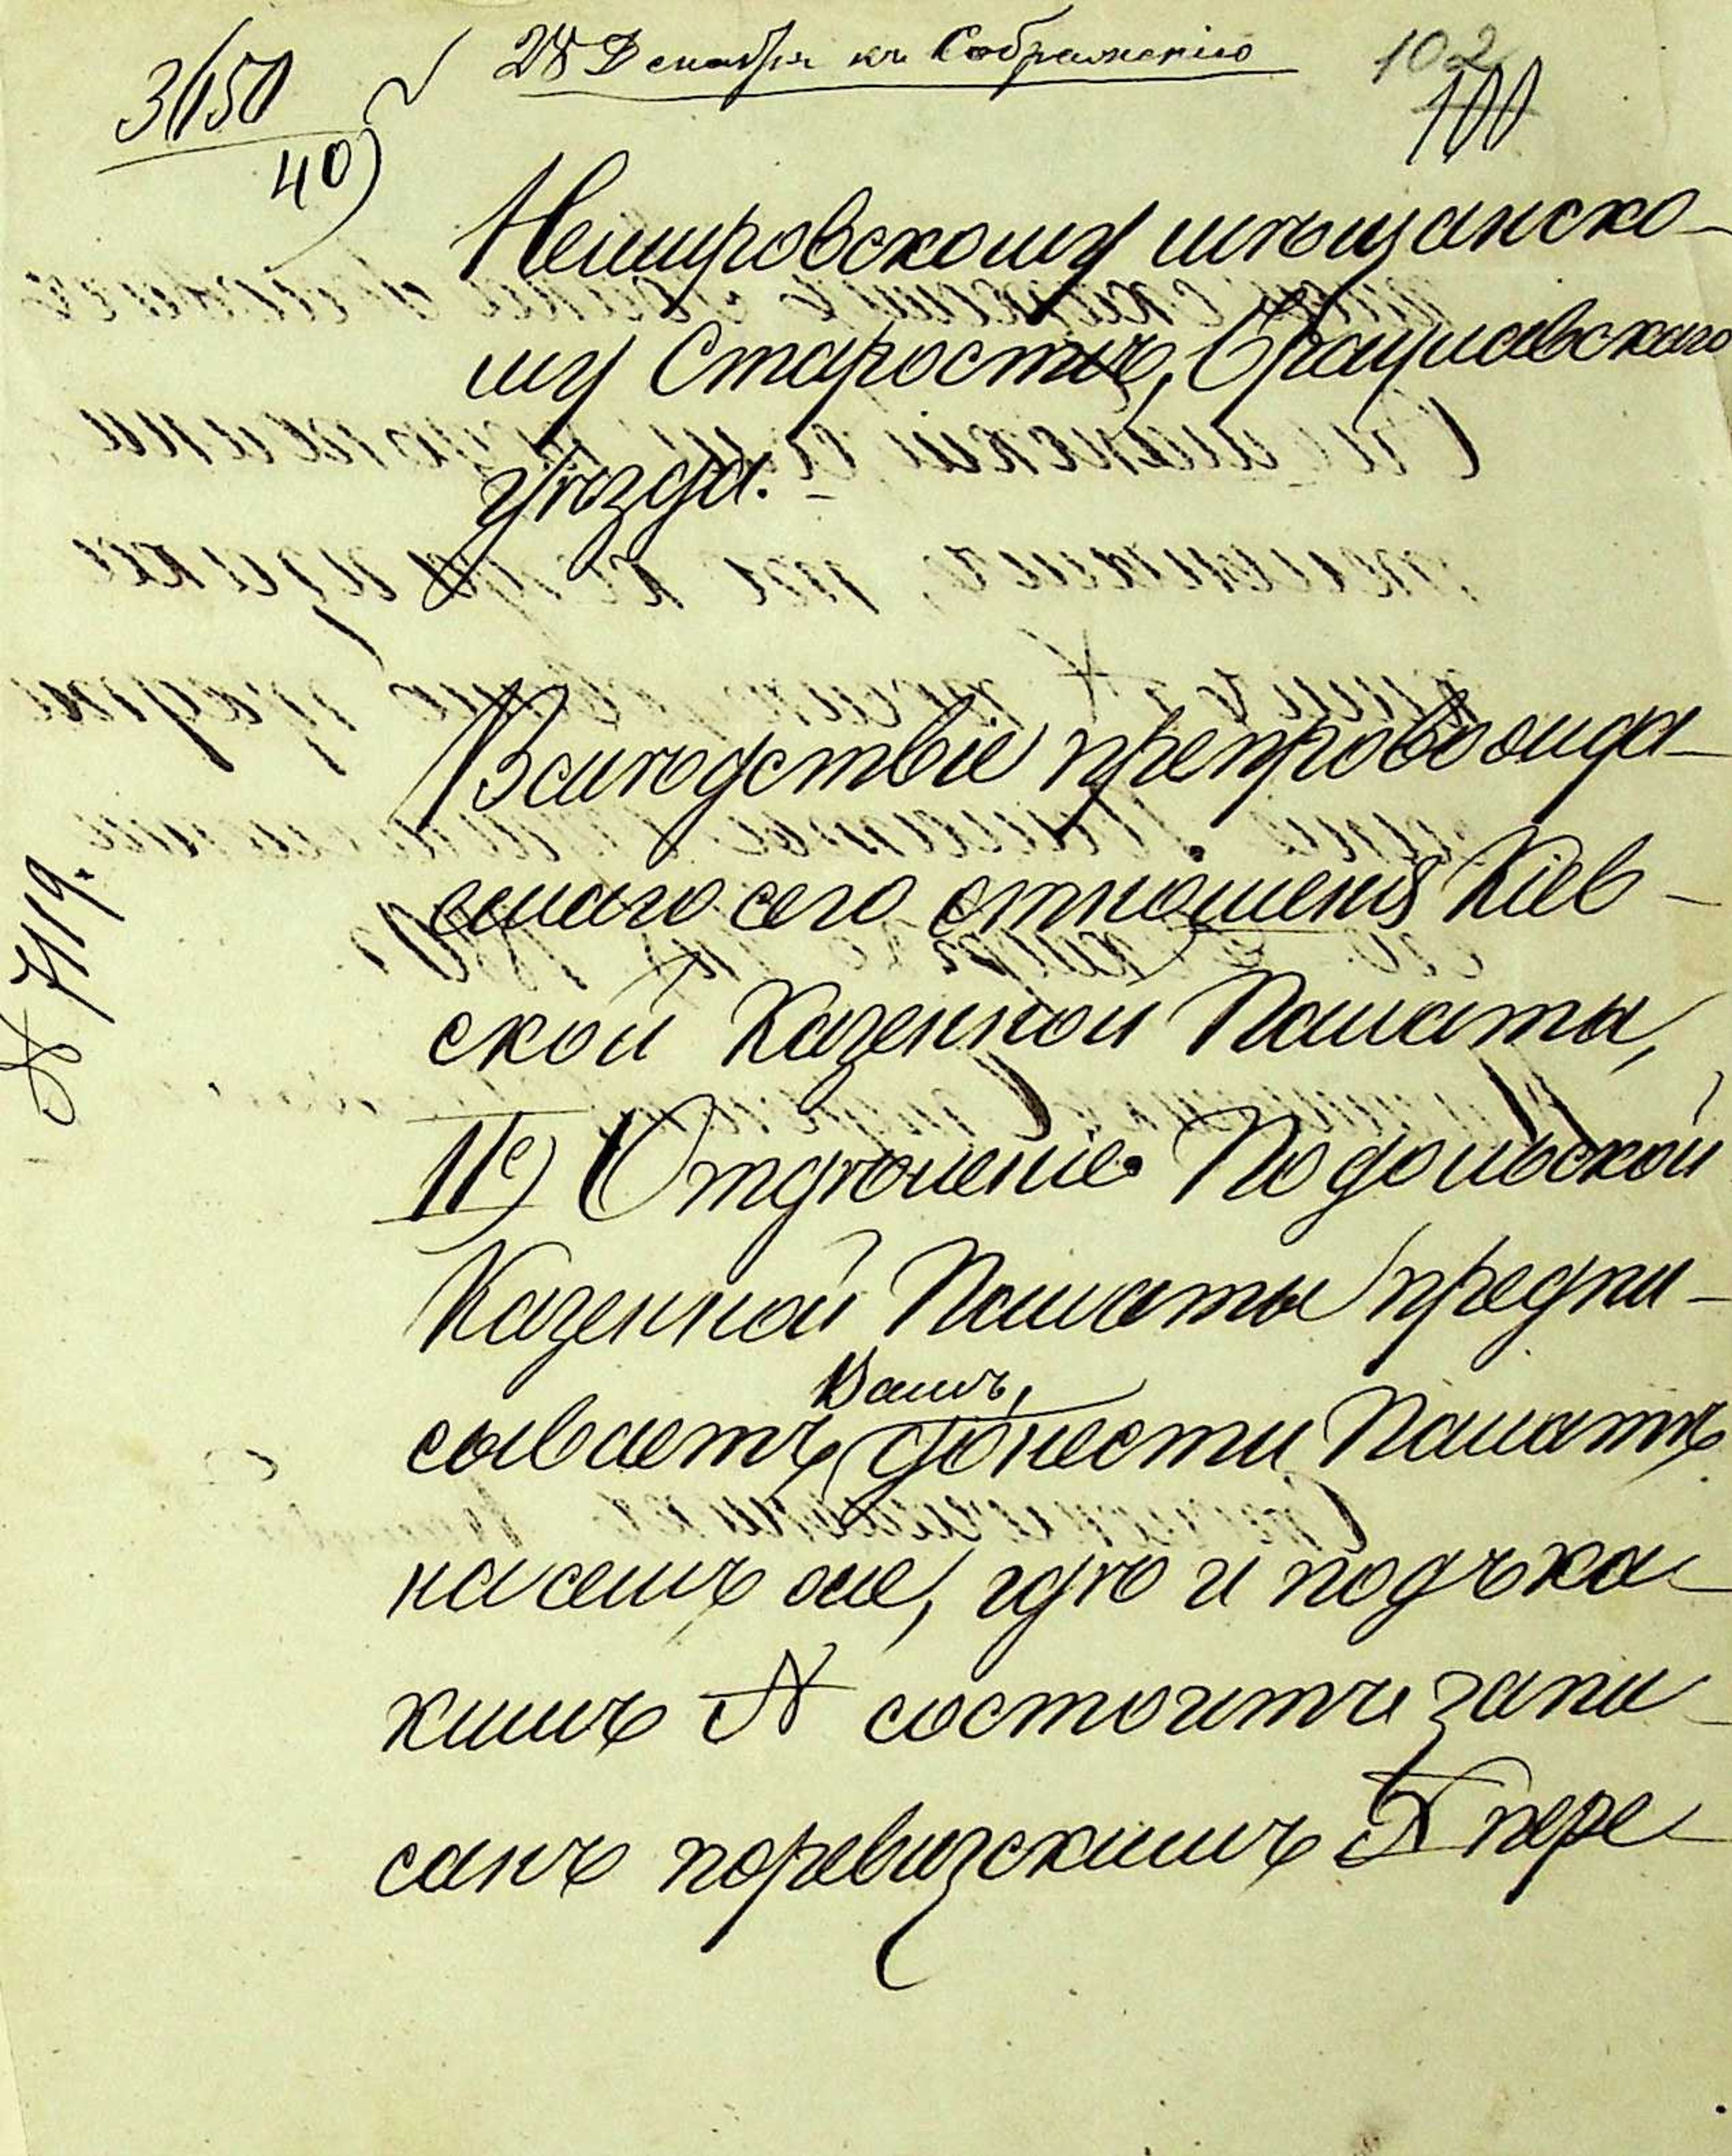 28 Декабря къ Соображенію
102
100
3150
40)
Немировскому мѣщанско-
му Старостѣ, Брацлавскаго
уѣзда.
Вслѣдствіе препровожда-
емаго сего отношенія Кіев-
ской Казенной Палаты,
II е) Отдѣленіе Подольской
Казенной Палаты предпи-
Вамъ,
сываетъ донести Палатѣ
на семъ же, гдѣ и подъ ка-
кимъ № состоитъ запи-
санъ по ревизскимъ № пере-
№ 7119.